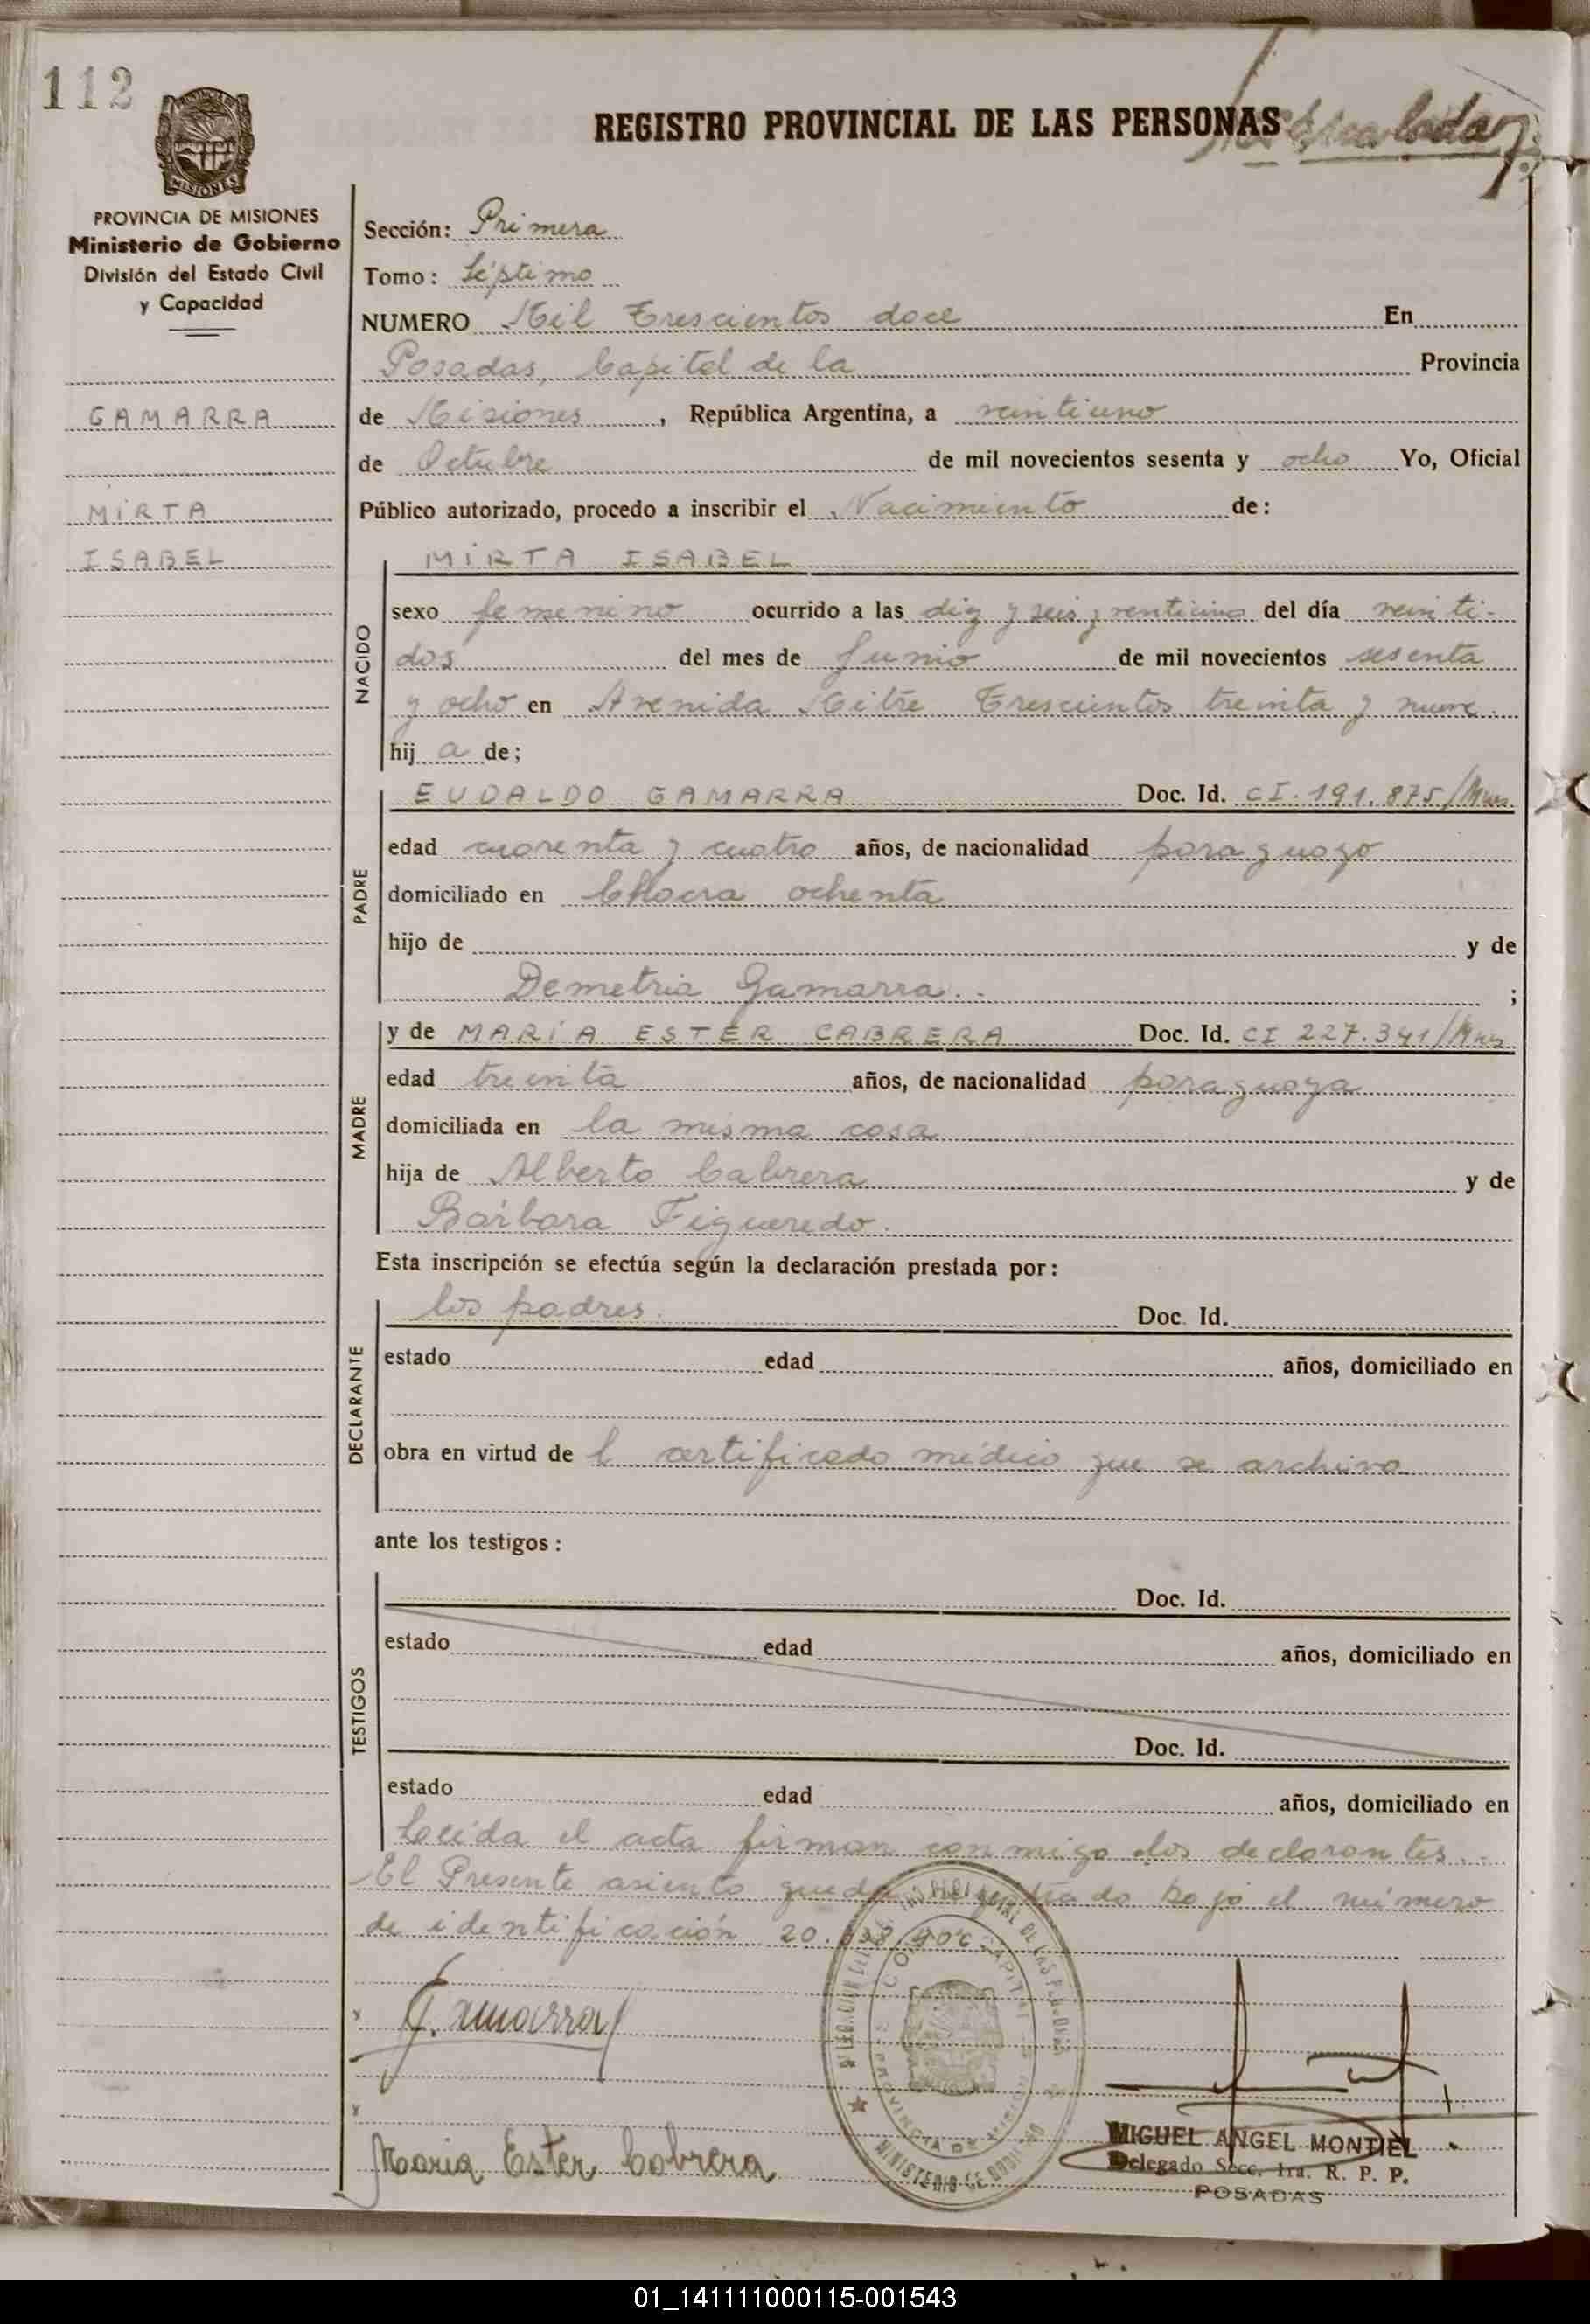 112
REGISTRO PROVINCIAL DE LAS PERSONAS
PROVINCIA DE MISIONES
Ministerio de Gobierno
División del Estado Civil
y Capacidad
GAMARRA
MIRTA
ISABEL
Sección: Primera
Tomo: Séptimo
NUMERO Mil Trescientos doce En
Posadas, Capital de la Provincia
de Misiones, República Argentina, a veintiuno
de Octubre de mil novecientos sesenta y ocho Yo, Oficial
Público autorizado, procedo a inscribir el Nacimiento de:
NACIDO
MIRTA ISABEL
sexo femenino ocurrido a las diez y seis y venticinco del día veinti-
dos del mes de Junio de mil novecientos sesenta
y ocho en Avenida Mitre Trescientos treinta y nueve.
hij a de;
PADRE
EUDALDO GAMARRA Doc. Id. CI. 191.875/Mnes.
edad cuarenta y cuatro años, de nacionalidad paraguayo
domiciliado en Chacra ochenta
hijo de y de
Demetria Gamarra.- ;
MADRE
y de MARÍA ESTER CABRERA Doc. Id. CI 227.341/Mnes.
edad treinta años, de nacionalidad paraguaya
domiciliada en la misma casa
hija de Alberto Cabrera y de
Bárbara Figueredo.
Esta inscripción se efectúa según la declaración prestada por:
DECLARANTE
los padres. Doc. Id.
estado edad años, domiciliado en
obra en virtud de l certificado médico que se archiva
ante los testigos:
TESTIGOS
Doc. Id.
estado edad años, domiciliado en
Doc. Id.
estado edad años, domiciliado en
Leída el acta firman conmigo los declarantes.-
El Presente asiento queda registrado bajo el número
de identificación 20.
Gamarra
Maria Ester Cabrera
MIGUEL ANGEL MONTIEL
Delegado Secc. 1ra. R. P. P.
POSADAS
01_141111000115-001543